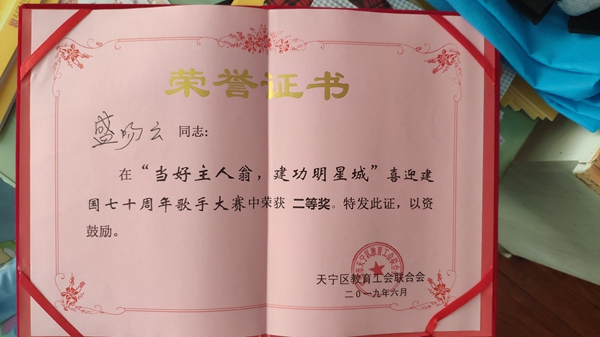 荣誉证书
盛吻云 同志:
在“当好主人翁，建功明星城”喜迎建
国七十周年歌手大赛中荣获 二等奖。特发此证，以资
鼓励。
天宁区教育工会联合会
二0一九年六月